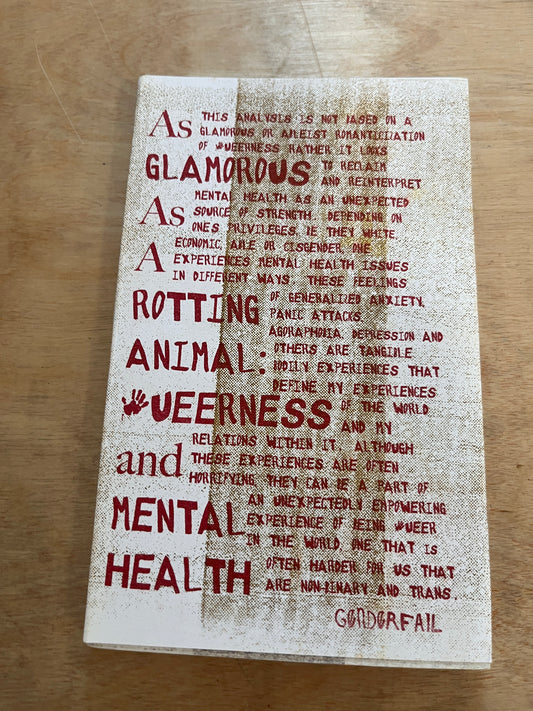 As
GLAMOROUS
As
A
ROTTING
ANIMAL:
UEERNESS
and
MENTAL
HEALTH
THIS ANALYSIS IS NOT BASED ON A
GLAMOROUS OR ABLEIST ROMANTICIZATION
OF UEERNESS RATHER IT LOOKS
TO RECLAIM
AND REINTERPRET
MENTAL HEALTH AS AN UNEXPECTED
SOURCE OF STRENGTH. DEPENDING ON
ONES PRIVILEGES, IE THEY WHITE,
ECONOMIC, ABLE OR CISGENDER, ONE
EXPERIENCES MENTAL HEALTH ISSUES
IN DIFFERENT WAYS. THESE FEELINGS
OF GENERALIZED ANXIETY,
PANIC ATTACKS,
AGORAPHOBIA, DEPRESSION AND
OTHERS ARE TANGIBLE
BODILY EXPERIENCES THAT
DEFINE MY EXPERIENCES
OF THE WORLD
AND MY
RELATIONS WITHIN IT. ALTHOUGH
THESE EXPERIENCES ARE OFTEN
HORRIFYING, THEY CAN BE A PART OF
AN UNEXPECTEDLY EMPOWERING
EXPERIENCE OF BEING UEER
IN THE WORLD, ONE THAT IS
OFTEN HARDER FOR US THAT
ARE NON-BINARY AND TRANS.
GENDERFAIL